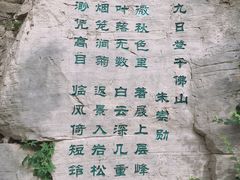 九日登千佛山
朱崇勋
微秋色里 着屐上层峰
叶落无数 白云深几重
烟笼涧菊 返景入岩松
渺凭高目 临风倚短筇